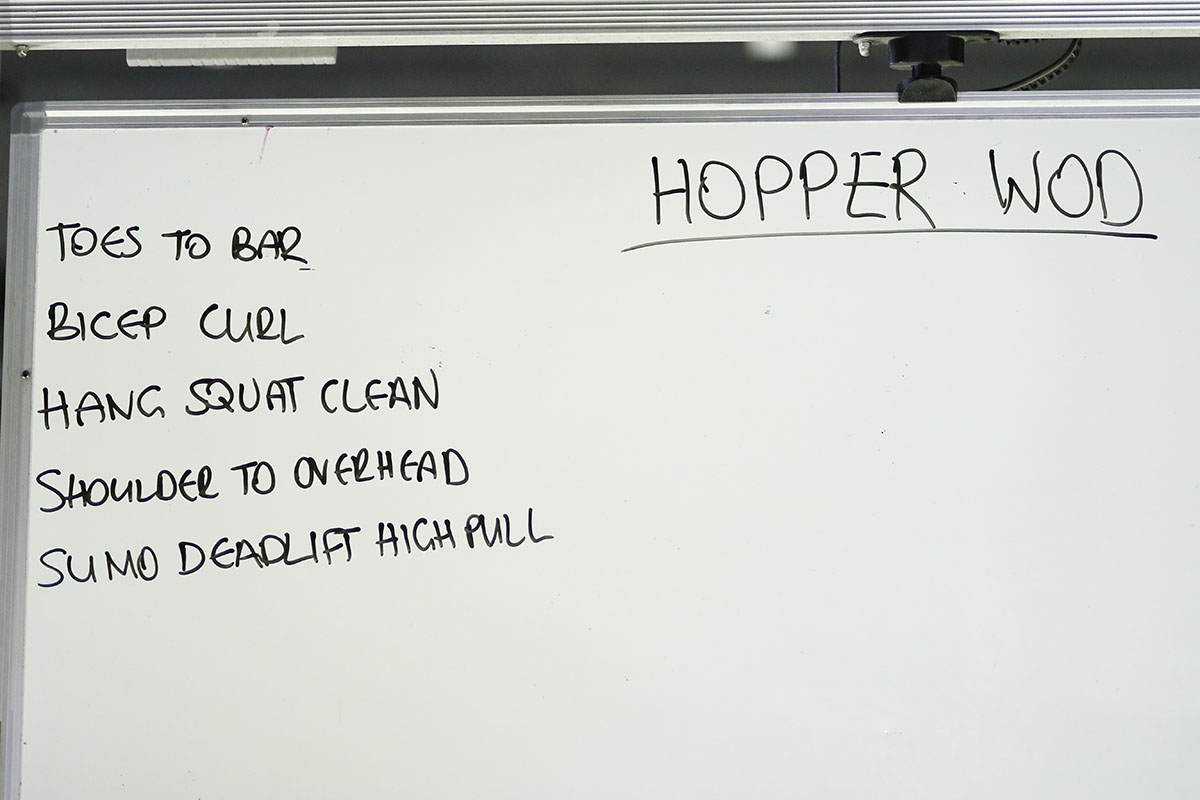 HOPPER WOD
TOES TO BAR
BICEP CURL
HANG SQUAT CLEAN
SHOULDER TO OVERHEAD
SUMO DEADLIFT HIGH PULL